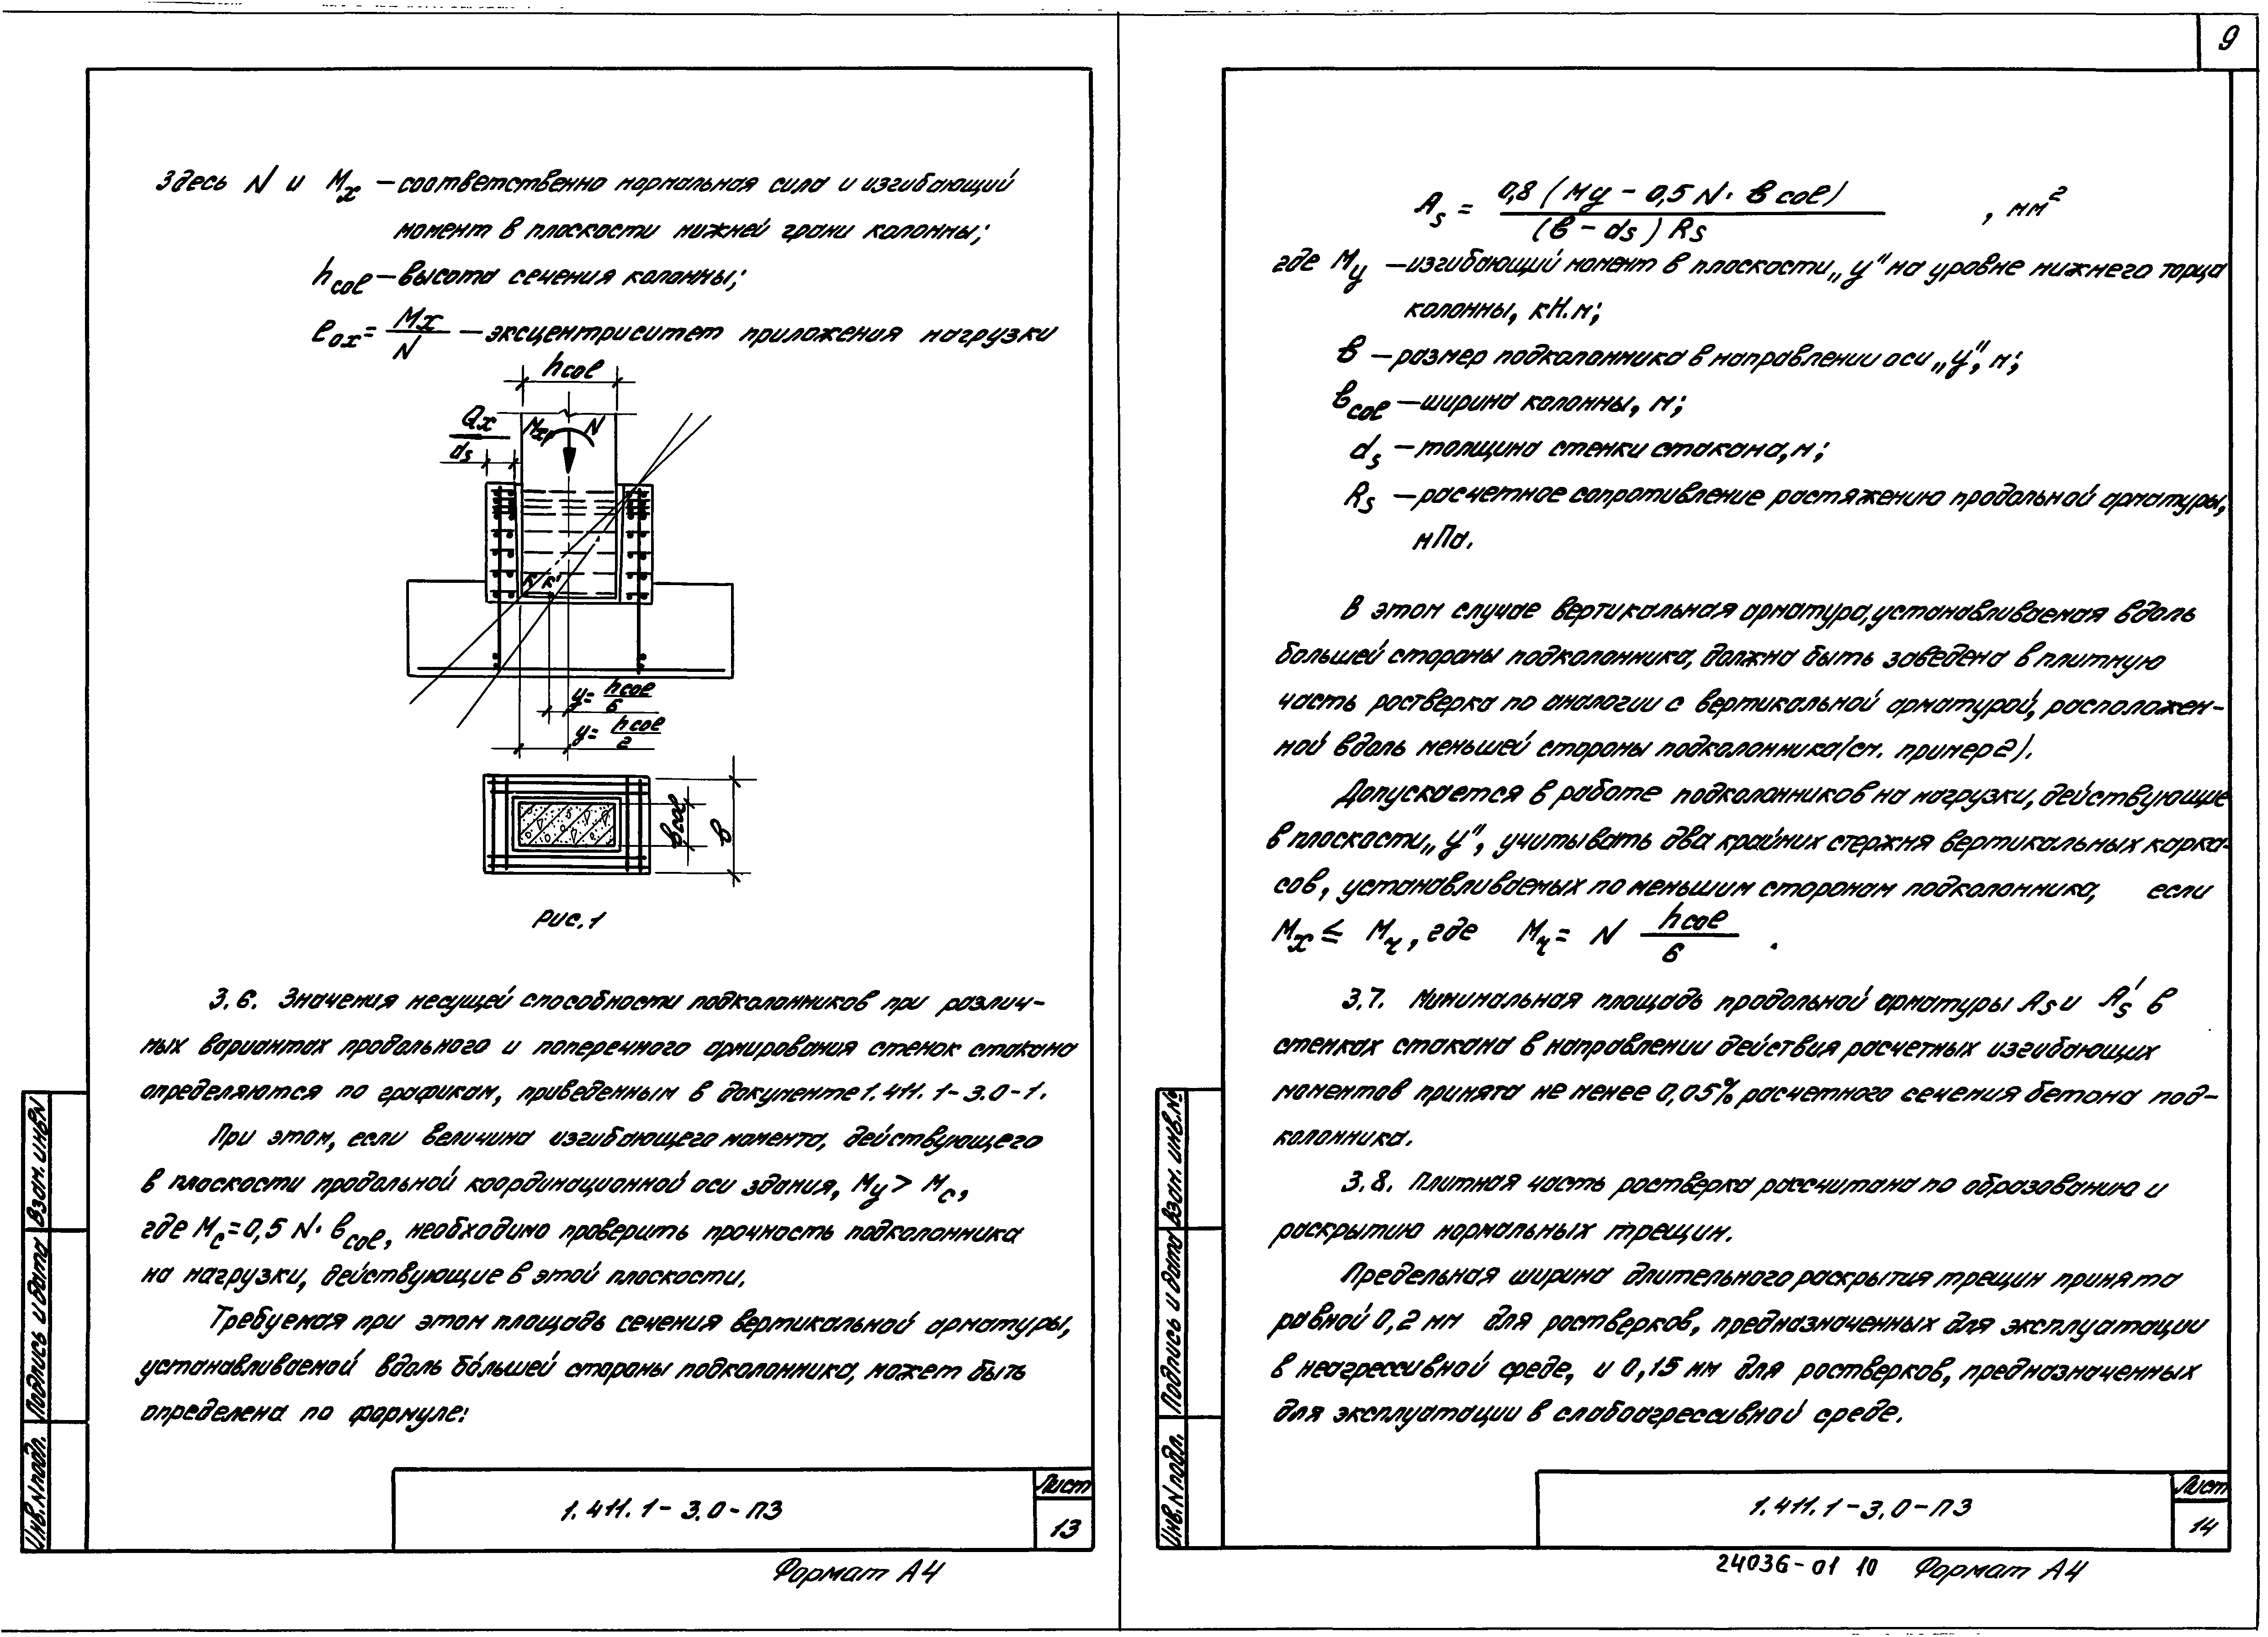 9
Здесь N и Mx – соответственно нормальная сила и изгибающий
момент в плоскости нижней грани колонны;
hcol – высота сечения колонны;
eox = Mx/N – эксцентриситет приложения нагрузки
hcol
Qx
ds
Mx
N
K K'
y = hcol/6
y = hcol/2
вcol
в
Рис. 1
3.6. Значения несущей способности подколонников при различ-
ных вариантах продольного и поперечного армирования стенок стакана
определяются по графикам, приведенным в документе 1.411.1-3.0-1.
При этом, если величина изгибающего момента, действующего
в плоскости продольной координационной оси здания, My > Mc,
где Mc = 0,5 N · вcol, необходимо проверить прочность подколонника
на нагрузки, действующие в этой плоскости.
Требуемая при этом площадь сечения вертикальной арматуры,
устанавливаемой вдоль бо́льшей стороны подколонника, может быть
определена по формуле:
1.411.1-3.0-ПЗ
Лист
13
Формат А4
Инв.N подл.
Подпись и дата
Взам. инв.N
As = 0,8 (My – 0,5 N · вcol) / (в – ds) Rs , мм²
где My – изгибающий момент в плоскости „y" на уровне нижнего торца
колонны, кН.м;
в – размер подколонника в направлении оси „y", м;
вcol – ширина колонны, м;
ds – толщина стенки стакана, м;
Rs – расчетное сопротивление растяжению продольной арматуры,
мПа.
В этом случае вертикальная арматура, устанавливаемая вдоль
большей стороны подколонника, должна быть заведена в плитную
часть ростверка по аналогии с вертикальной арматурой, расположен-
ной вдоль меньшей стороны подколонника (см. пример 2).
Допускается в работе подколонников на нагрузки, действующие
в плоскости „y", учитывать два крайних стержня вертикальных карка-
сов, устанавливаемых по меньшим сторонам подколонника, если
Mx ≤ Mч, где Mч = N hcol/6 .
3.7. Минимальная площадь продольной арматуры As и A's в
стенках стакана в направлении действия расчетных изгибающих
моментов принята не менее 0,05% расчетного сечения бетона под-
колонника.
3.8. Плитная часть ростверка рассчитана по образованию и
раскрытию нормальных трещин.
Предельная ширина длительного раскрытия трещин принята
равной 0,2 мм для ростверков, предназначенных для эксплуатации
в неагрессивной среде, и 0,15 мм для ростверков, предназначенных
для эксплуатации в слабоагрессивной среде.
1.411.1-3.0-ПЗ
Лист
14
24036-01 10 Формат А4
Инв.N подл.
Подпись и дата
Взам. инв.№